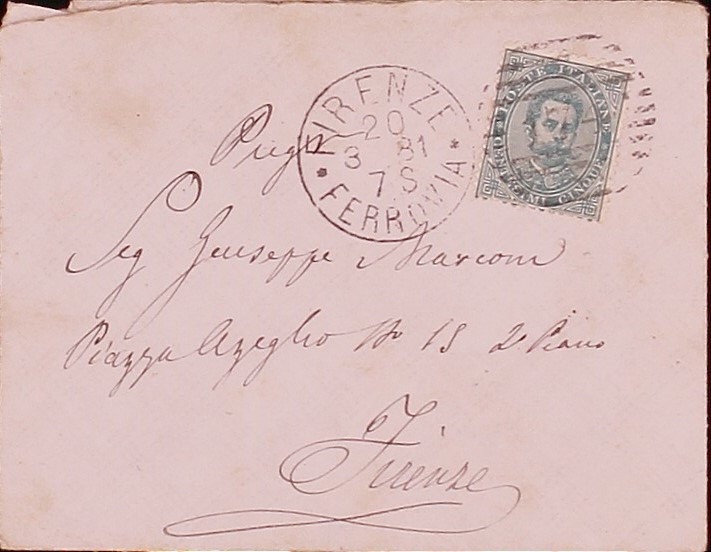 FIRENZE
20
3 81
7 S
* FERROVIA *
POSTE ITALIANE
CINQUE
Preg
Sig Giuseppe Marconi
Piazza Azeglio No 15 2o Piano
Firenze